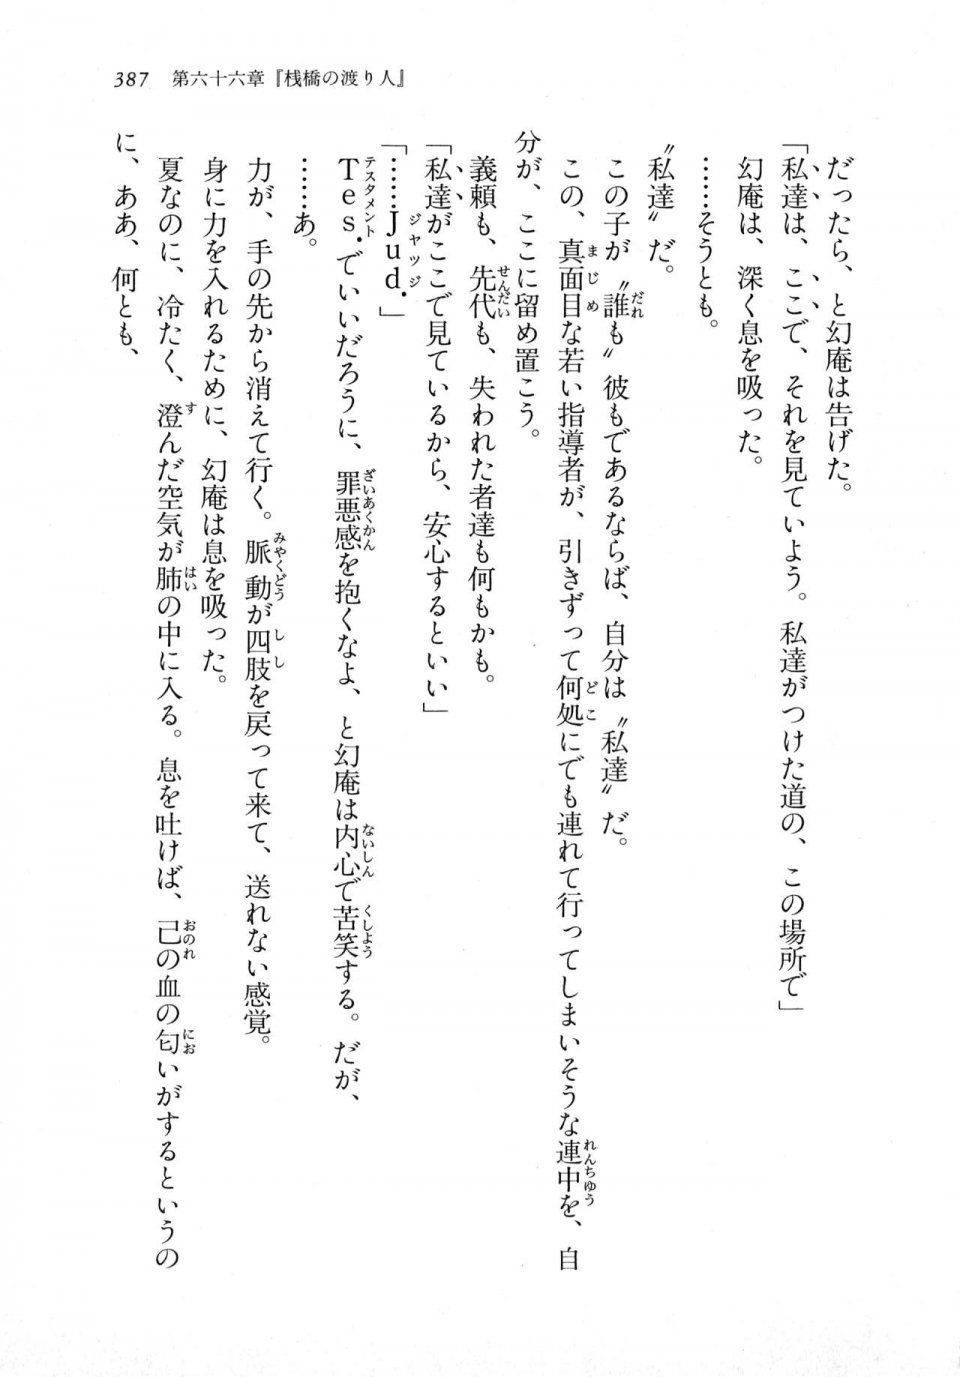 387 第六十六章『桟橋の渡り人』
だったら、と幻庵は告げた。
「私達は、ここで、それを見ていよう。私達がつけた道の、この場所で」
幻庵は、深く息を吸った。
……そうとも。
〝私達〟だ。
この子が〝誰も〟彼もであるならば、自分は〝私達〟だ。
この、真面目な若い指導者が、引きずって何処にでも連れて行ってしまいそうな連中を、自
分が、ここに留め置こう。
義頼も、先代も、失われた者達も何もかも。
「私達がここで見ているから、安心するといい」
「……Jud.」
Tes.でいいだろうに、罪悪感を抱くなよ、と幻庵は内心で苦笑する。だが、
……あ。
力が、手の先から消えて行く。脈動が四肢を戻って来て、送れない感覚。
身に力を入れるために、幻庵は息を吸った。
夏なのに、冷たく、澄んだ空気が肺の中に入る。息を吐けば、己の血の匂いがするというの
に、ああ、何とも、